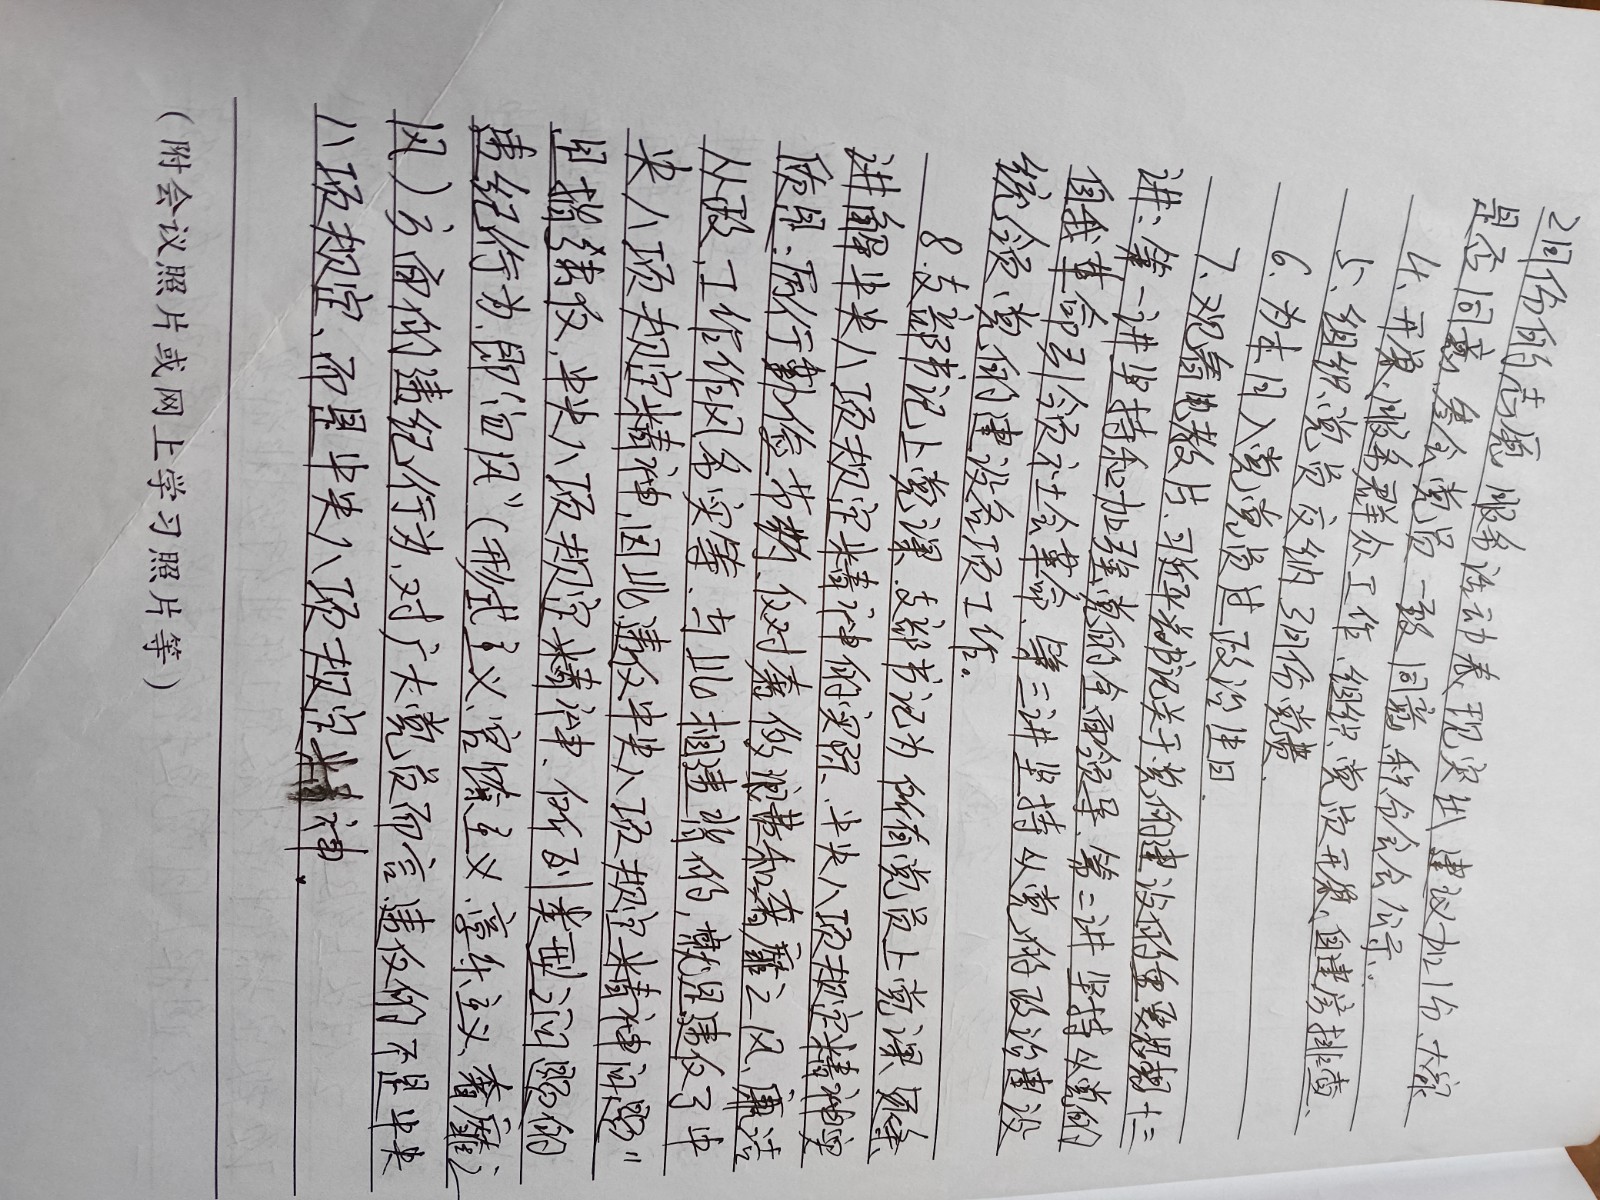 2同价的志愿服务活动表现突出建议加1分、大家
是否同意、参会党员一致同意积分会公示.
4、开展服务群众工作
5、组织党员交纳3月份党费. 组织党员开展自建房排查、
6、为本月入党党员过政治生日.
7、观看电教片、习近平总书记关于党的建设的重要思想十三
讲:第一讲坚持和加强党的全面领导、第二讲坚持以党的
自我革命引领社会革命、第三讲坚持以党的政治建设
统领党的建设各项工作。
8.支部书记上党课、支部书记为所有党员上党课、具体
讲解中央八项规定精神的实质、中央八项规定精神实
质是:厉行勤俭节约、反对奢侈浪费和奢靡之风、廉洁
从政、工作作风务实等、与此相违背的,就是违反了中
央八项规定精神,因此“违反中央八项规定精神问题”
是指违反、中央八项规定精神、所列类型问题的
违纪行为、即“四风”(形式主义、官僚主义、享乐主义、奢靡之
风)方面的违纪行为、对广大党员而言违反的不是中央
八项规定、而是中央八项规定精神.
(附会议照片或网上学习照片等)